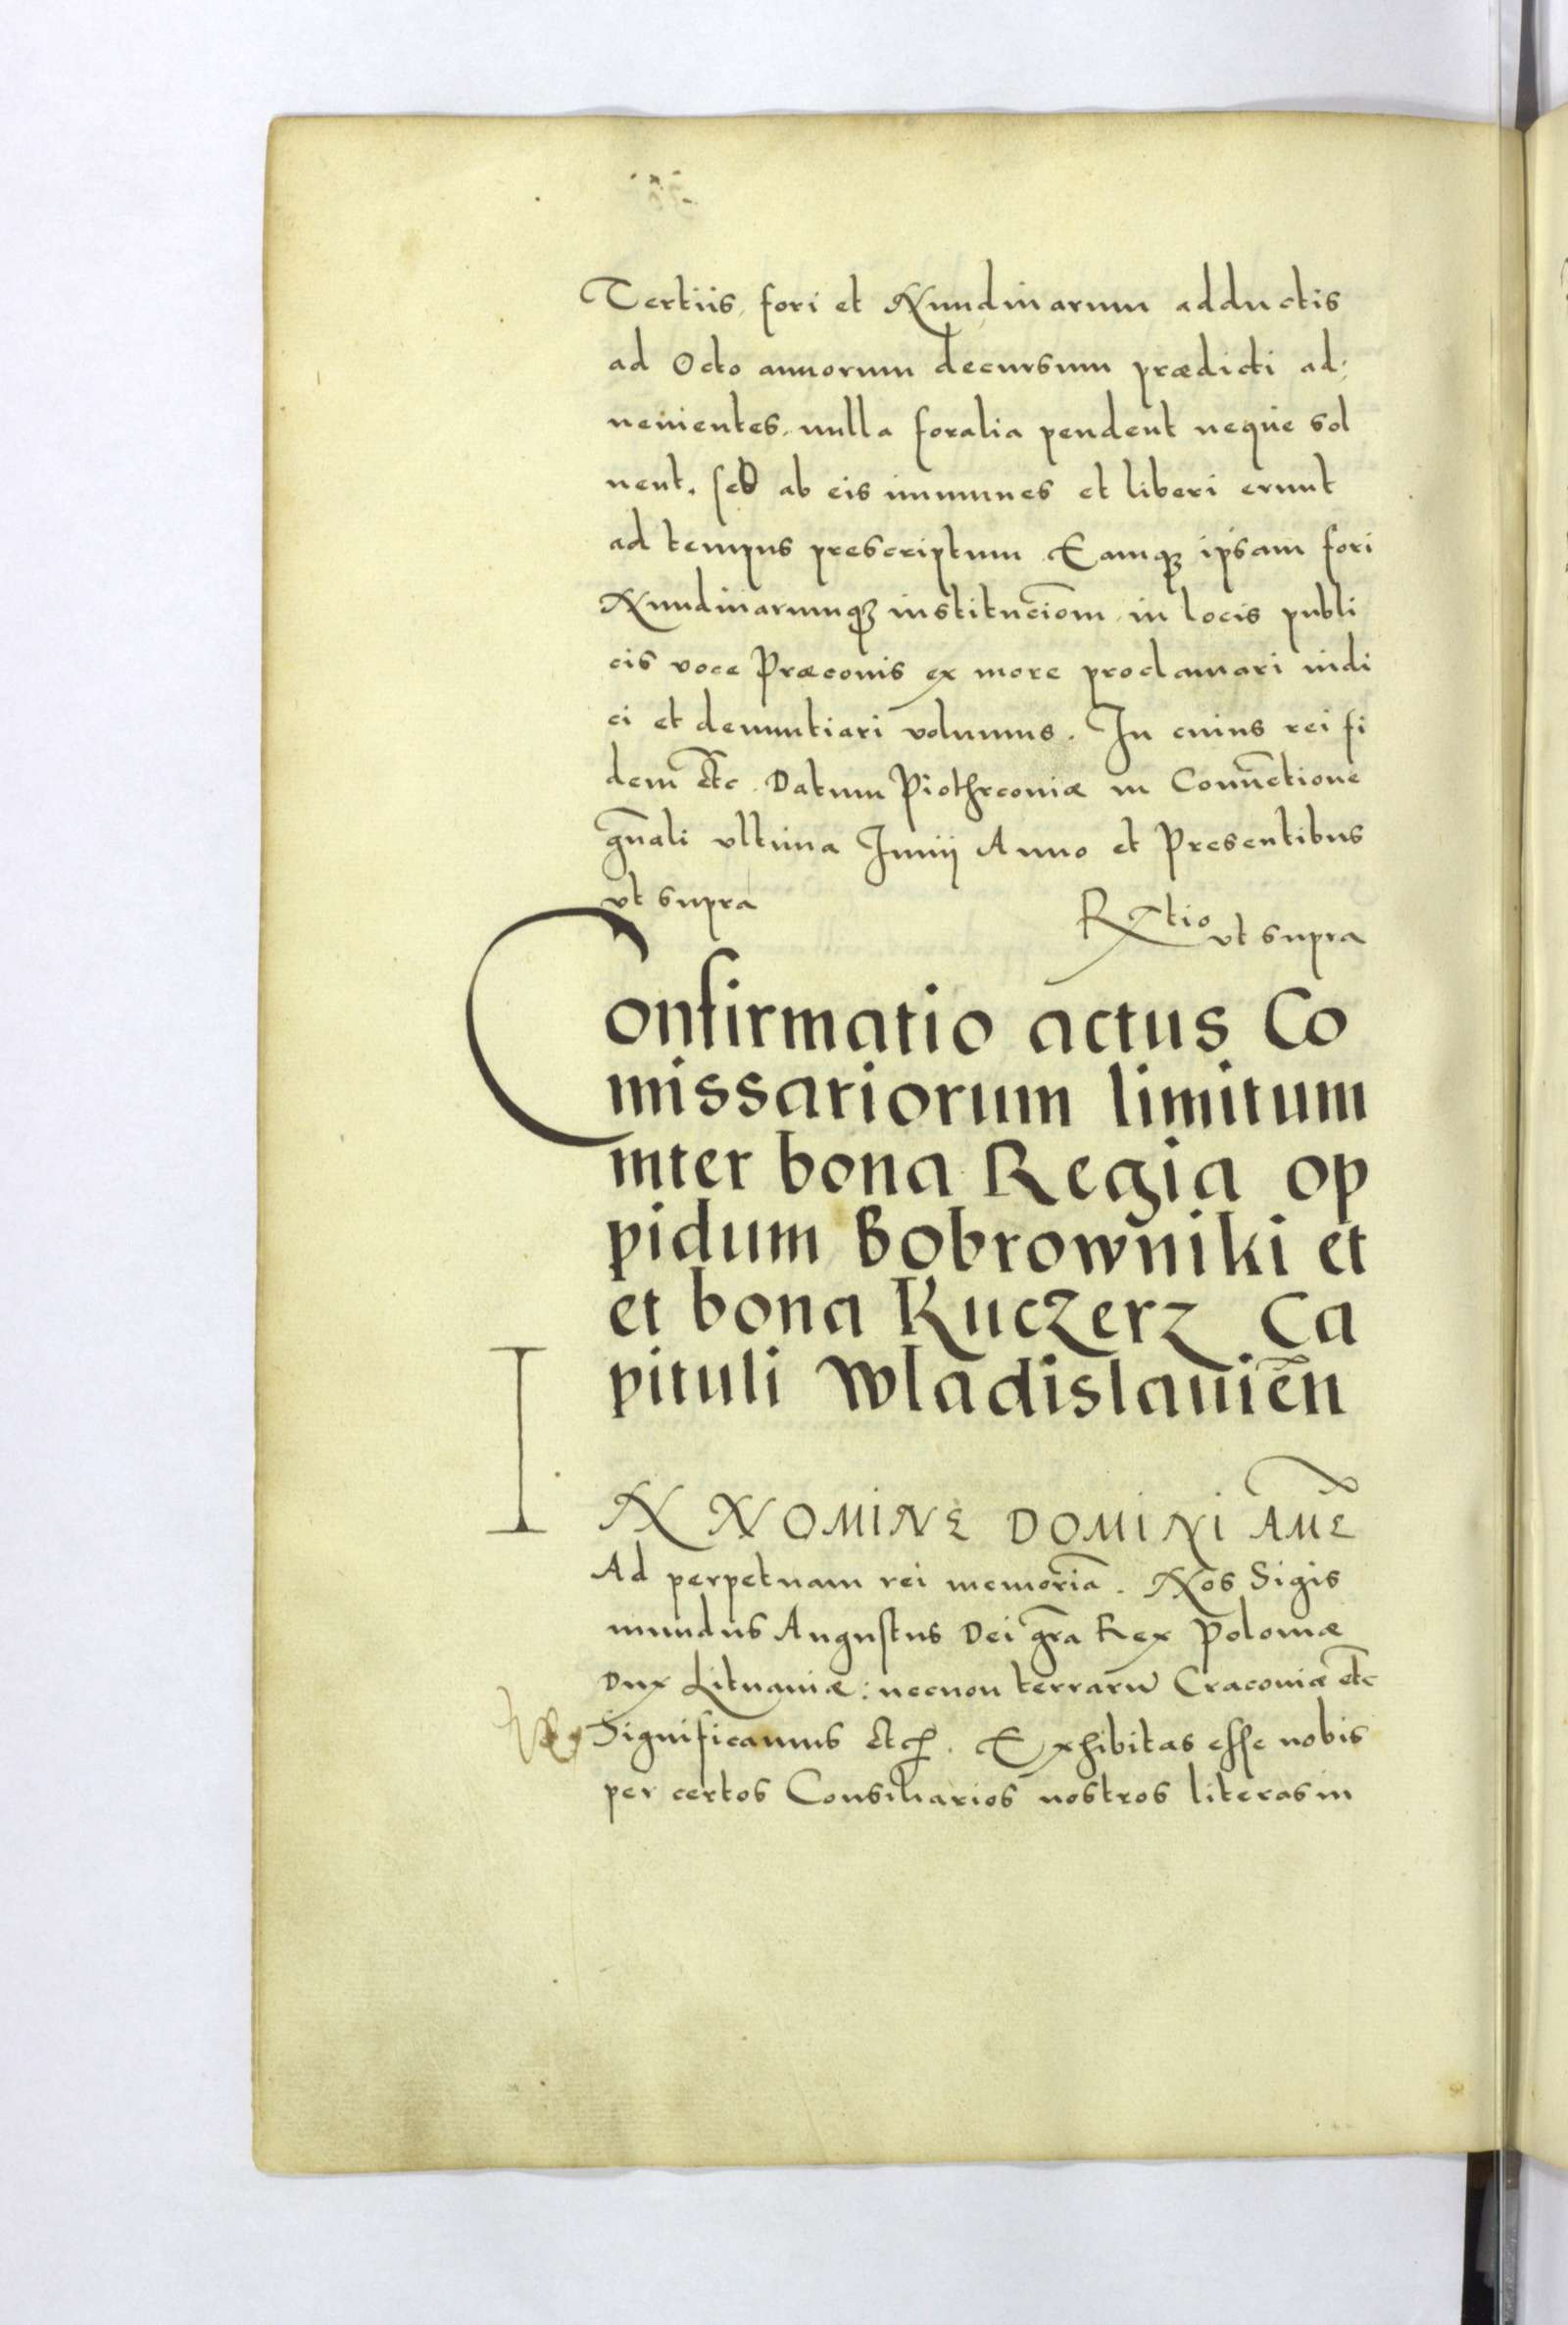 Tertiis, fori et Nundinarum adductis
ad Octo annorum decursum prædicti ad,
uenientes, nulla foralia pendent neque sol
uent. sed ab eis immunes et liberi erunt
ad tempus prescriptum Eamqȝ ipsam fori
Nundinarumqȝ institucīom in locis publi
cis voce Præconis ex more proclamari indi
ci et denuntiari volumus. In cuius rei fi
dem etc̄. Datum Piothrconiæ in Conuēctione
gn̄ali vltima Junij Anno et Presentibus
vt supra
Rxtio vt supra
Confirmatio actus Co
missariorum limitum
inter bona Regia op
pidum Bobrowniki et
et bona Kuczerz Ca
pituli Wladislauien̄
IN NOMINE DOMINI AMĒ
Ad perpetuam rei memoriā. Nos Sigis
mundus Augustus Dei grā Rex Poloniæ
Dux Lituaniæ: necnon terrarū Craconiæ etc̄
Significamus etc. Exhibitas esse nobis
per certos Consiliarios nostros literas in